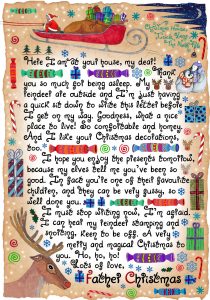 Here I am at your house, my dear!
Thank
you so much for being asleep. My
reindeer are outside and I'm just having
a quick sit down to write this letter before
I get on my way. Goodness, what a nice
place to live! So comfortable and homey.
And I do like your Christmas decorations,
too.
I hope you enjoy the presents tomorrow,
because my elves tell me you've been so
good. In fact you're one of their favourite
children, and they can be very fussy, so
well done you.
I must stop writing now, I'm afraid.
I can hear my reindeer stamping and
snorting, keen to be off. A very
merry and magical Christmas to
you. Ho, ho, ho!
Lots of love,
Father Christmas